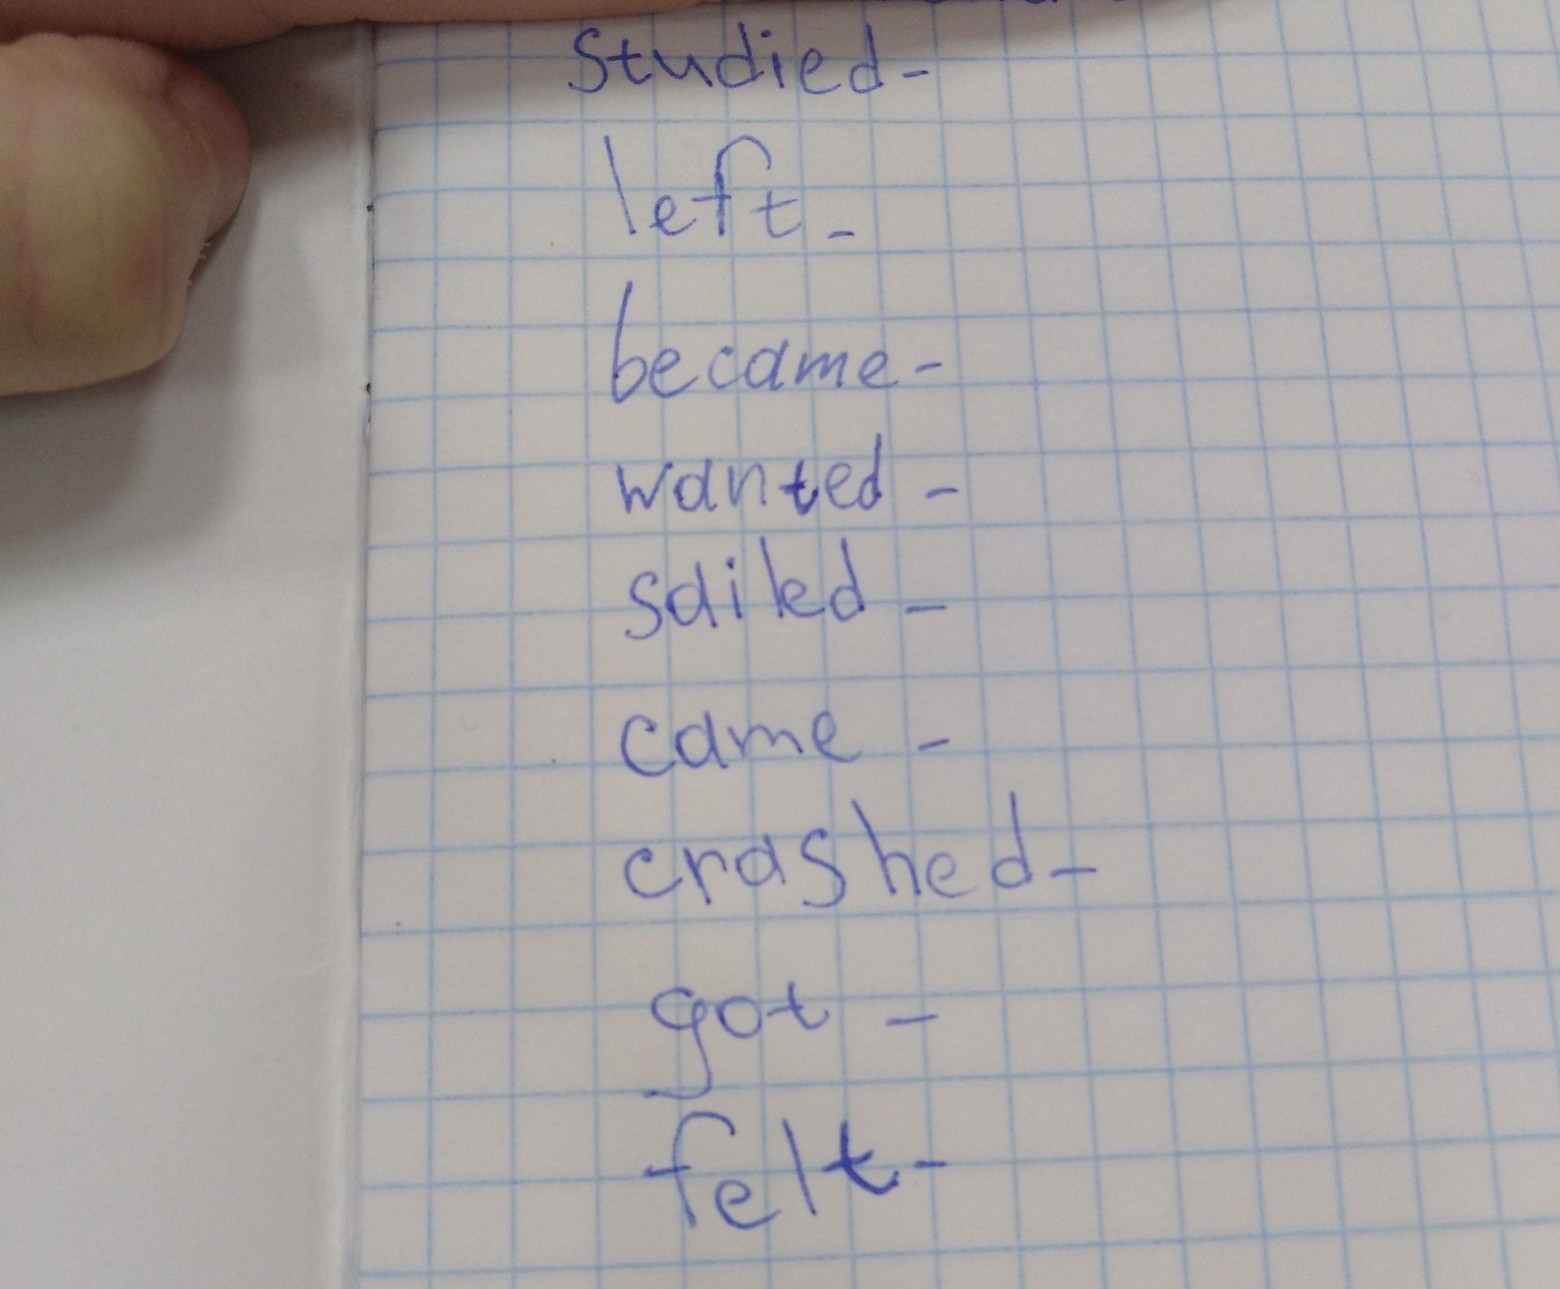 Studied-
left-
became-
wanted -
sailed -
came -
crashed-
got -
felt-